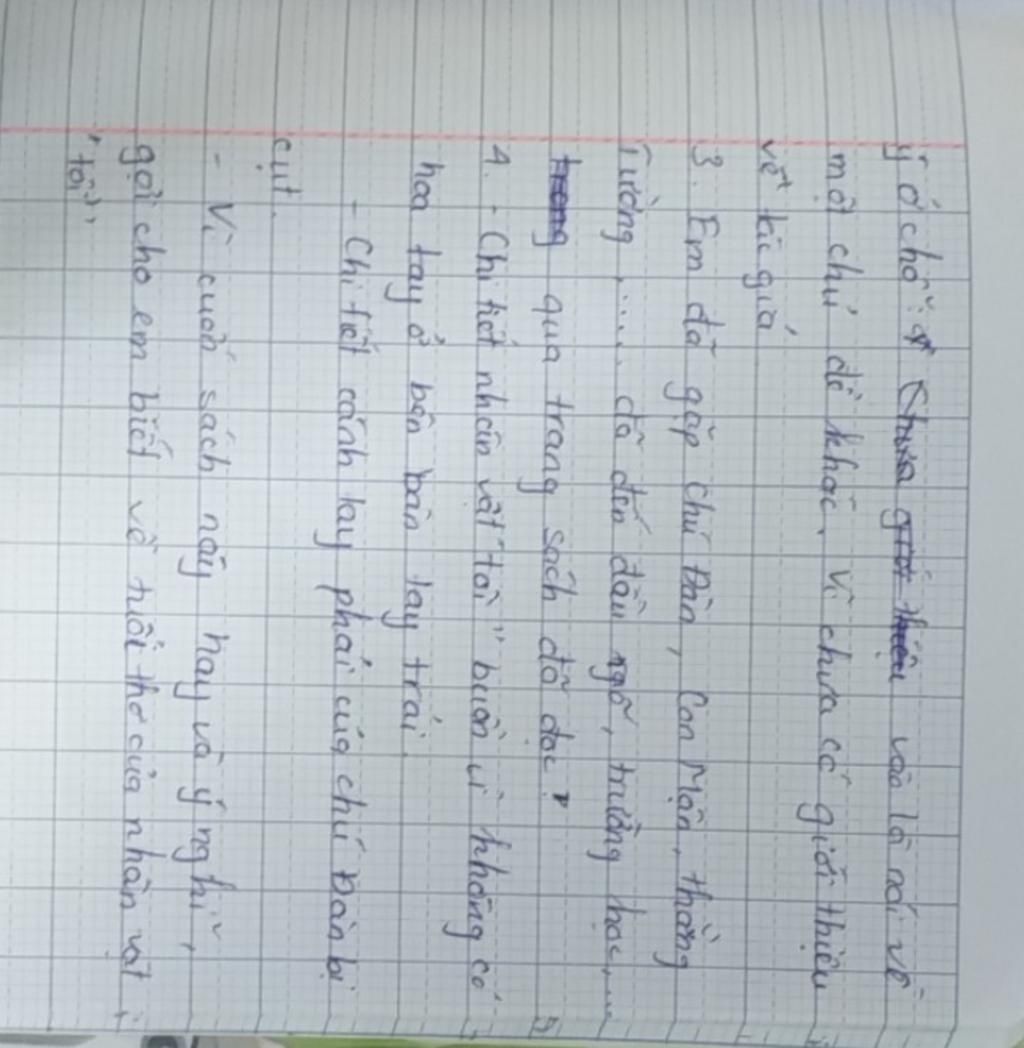 ý ở chỗ: Chưa giới thiệu vào là nói về
một chủ đề khác. Vì chưa có giới thiệu
về tác giả
3. Em đã gặp chú Đàn, Con Mận, thằng
Tường,..... đã đến đầu ngõ, trường học,...
trong qua trang sách đã đọc.
4. - Chi tiết nhân vật "tôi" buồn vì không có
hoa tay ở bên bàn tay trái.
- Chi tiết cánh tay phải của chú Đàn bị
cụt.
- Vì cuốn sách này hay và ý nghĩ,
gợi cho em biết về tuổi thơ của nhân vật
"tôi"